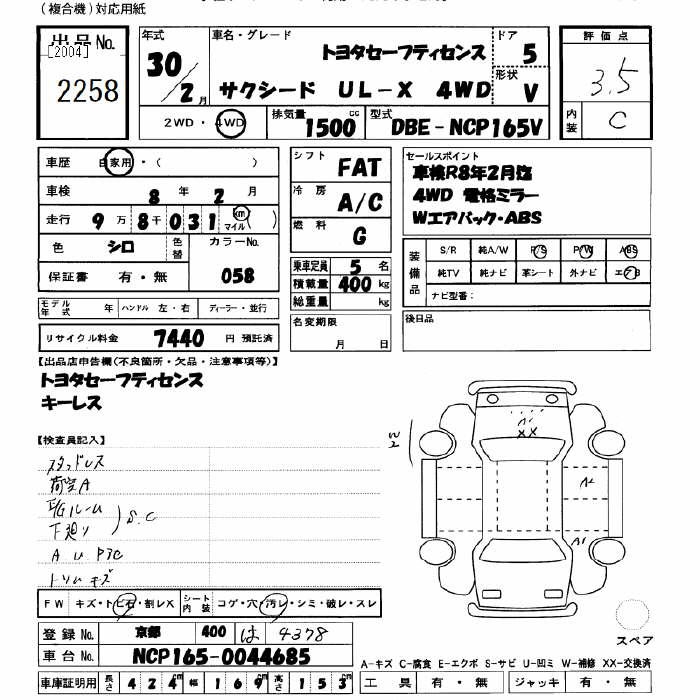 (複合機)対応用紙
出品No.
[2004]
2258
年式
30/2月
車名・グレード
トヨタセーフティセンス
サクシード UL-X 4WD
ドア
5
形状
V
評価点
3.5
内装
C
2WD・4WD
排気量
1500 cc
型式
DBE-NCP165V
車歴 自家用・( )
車検 8年 2月
走行 9万 8千 031 km マイル ( )
色 シロ 色替
カラーNo.
058
保証書 有・無
モデル年式 年 ハンドル 左・右 ディーラー・並行
リサイクル料金 7440 円 預託済
シフト FAT
冷房 A/C
燃料 G
乗車定員 5 名
積載量 400 kg
総重量 kg
名変期限
月 日
セールスポイント
車検R8年2月迄
4WD 電格ミラー
Wエアバック・ABS
装備品
S/R 純A/W P/S P/W ABS
純TV 純ナビ 革シート 外ナビ エアB
ナビ型番:
後日品
【出品店申告欄(不良箇所・欠品・注意事項等)】
トヨタセーフティセンス
キーレス
【検査員記入】
スタッドレス
荷室A
E/Gルーム
下廻り
S.C
A U P多C
トリムキズ
W2
A1
XX
A2
A1
FW キズ・トビ石・割レX シート内装 コゲ・穴・汚レ・シミ・破レ・スレ
登録No. 京都 400 は 4378
車台No. NCP165-0044685
車庫証明用 長さ 424cm 幅 169cm 高さ 153cm
スペア
A-キズ C-腐食 E-エクボ S-サビ U-凹ミ W-補修 XX-交換済
工具 有・無 ジャッキ 有・無